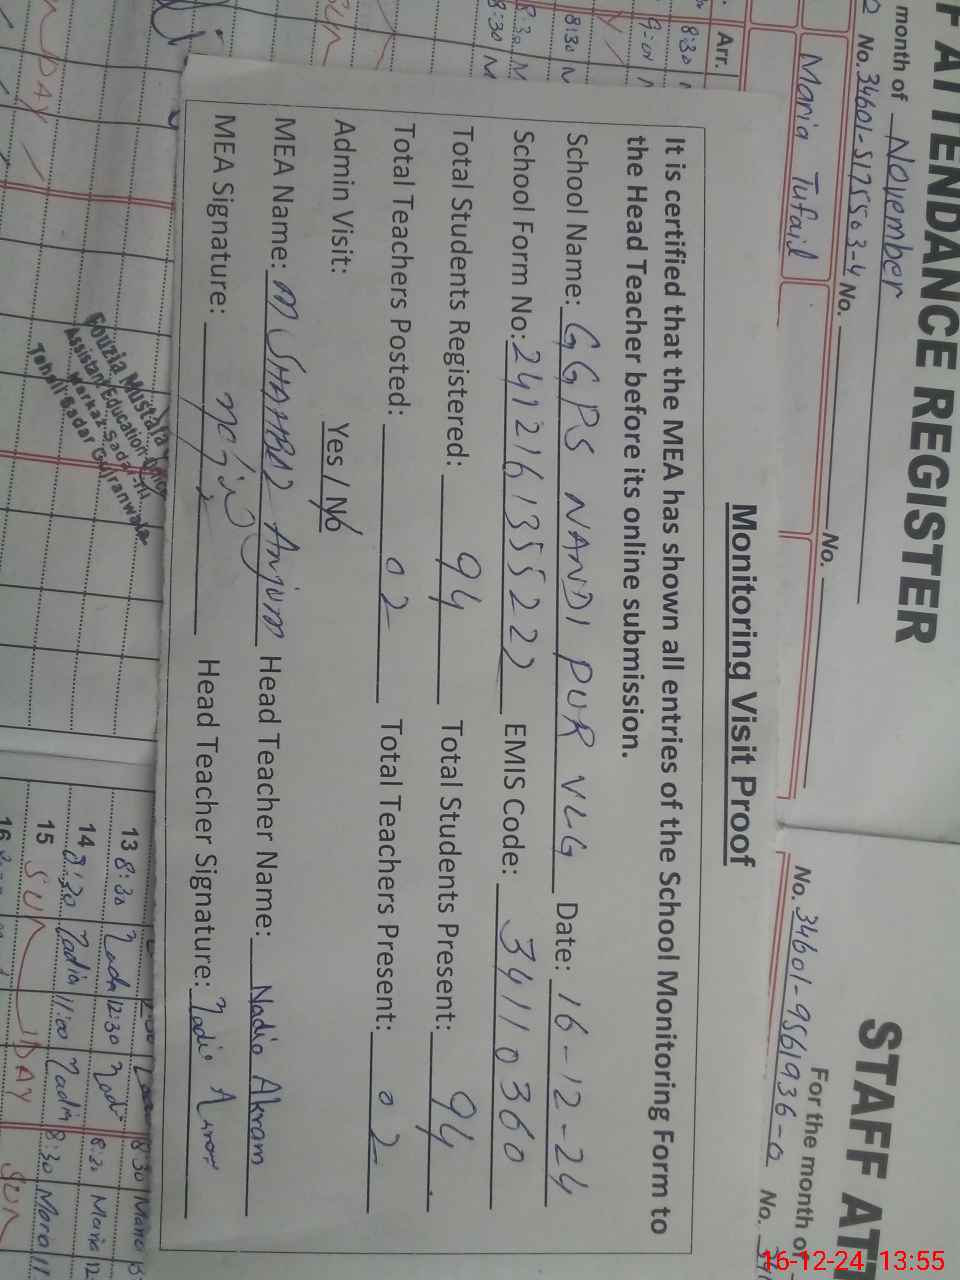 F ATTENDANCE REGISTER
month of November
No. 34601-5175503-4 No. No.
Maria Tufail
Arr.
STAFF ATT
For the month of
No. 34601-9561936-0 No.
Monitoring Visit Proof
It is certified that the MEA has shown all entries of the School Monitoring Form to
the Head Teacher before its online submission.
School Name: GGPS NANDI PUR VLG Date: 16-12-24
School Form No: 24121613 5522 EMIS Code: 34110360
Total Students Registered: 94 Total Students Present: 94
Total Teachers Posted: 02 Total Teachers Present: 02
Admin Visit: Yes / No
MEA Name: M Anjum Head Teacher Name: Nadia Akram
MEA Signature: Head Teacher Signature: Nadia
Fouzia Mustafa
Assistant Education Officer
Markaz Sadar-III
Tehsil Sadar Gujranwala
13 8:30 Nadia 12:30 Nadia 8:30 Maria 12
14 8:30 Nadia 11:00 Nadia 8:30 Maria 11
15 SUN DAY SUN
16
16-12-24 13:55